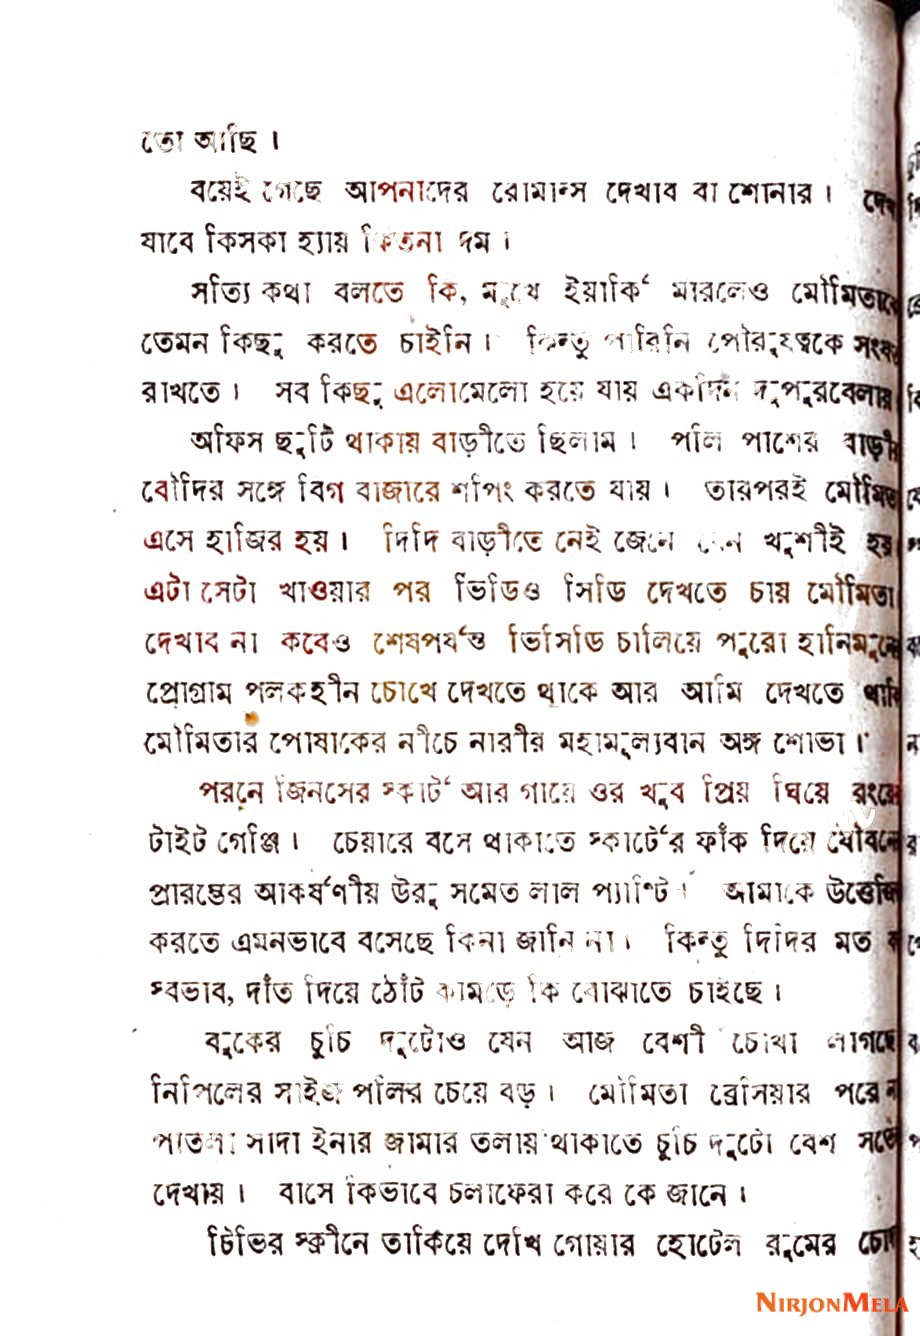 তো আছি ।
বয়েই গেছে আপনাদের রোমান্স দেখাব বা শোনার ।
যাবে কিসকা হ্যায় কিতনা দম ।
সত্যি কথা বলতে কি, মুখে ইয়ার্কি মারলেও
তেমন কিছু করতে চাইনি । কিন্তু পারিনি পৌরুষত্বকে
রাখতে । সব কিছু এলোমেলো হয়ে যায় একদিন দুপুরবেলায়
অফিস ছুটি থাকায় বাড়ীতে ছিলাম । পলি পাশের
বৌদির সঙ্গে বিগ বাজারে শপিং করতে যায় । তারপরই
এসে হাজির হয় । দিদি বাড়ীতে নেই জেনে যেন খুশীই হয়
এটা সেটা খাওয়ার পর ভিডিও সিডি দেখতে চায় মৌমিতা
দেখাব না কবেও শেষপর্যন্ত ভিসিডি চালিয়ে পুরো
প্রোগ্রাম পলকহীন চোখে দেখতে থাকে আর আমি দেখতে
মৌমিতার পোষাকের নীচে নারীর মহামূল্যবান অঙ্গ শোভা ।
পরনে জিনসের স্কার্ট আর গায়ে ওর খুব প্রিয় ঘিয়ে
টাইট গেঞ্জি । চেয়ারে বসে থাকাতে স্কার্টের ফাঁক দিয়ে
প্রারম্ভের আকর্ষণীয় উরু সমেত লাল প্যান্টি । আমাকে
করতে এমনভাবে বসেছে কিনা জানি না । কিন্তু দিদির মত
স্বভাব, দাঁত দিয়ে ঠোঁট কামড়ে কি বোঝাতে চাইছে ।
বুকের চুচি দুটোও যেন আজ বেশী চোখা লাগছে
নিপিলের সাইজ পলির চেয়ে বড় । মৌমিতা ব্রেসিয়ার পরে
পাতলা সাদা ইনার জামার তলায় থাকাতে চুচি দুটো বেশ
দেখায় । বাসে কিভাবে চলাফেরা করে কে জানে ।
টিভির স্ক্রীনে তাকিয়ে দেখি গোয়ার হোটেল রুমের
NIRJONMELA